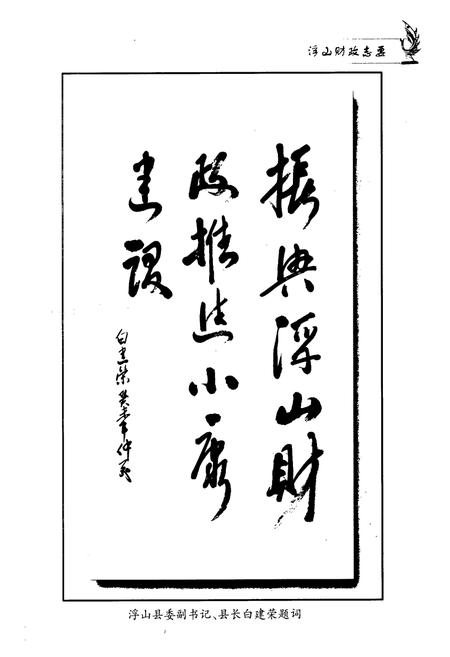 浮山财政志
振興浮山財
政推進小康
建設
白建荣 癸未年仲夏
浮山县委副书记、县长白建荣题词